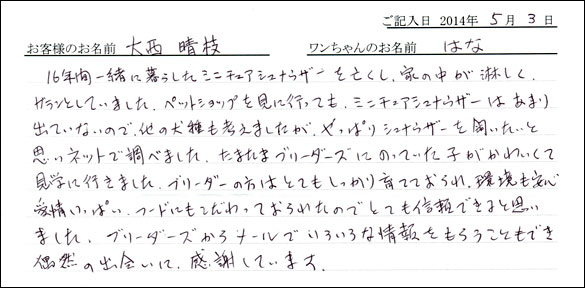 ご記入日 2014年 5月 3日
お客様のお名前 大西 晴枝 ワンちゃんのお名前 はな
16年間一緒に暮らしたミニチュアシュナウザーを亡くし、家の中が淋しく、
ガランとしていました。ペットショップを見に行っても、ミニチュアシュナウザーはあまり
出ていないので、他の犬種も考えましたが、やっぱりシュナウザーを飼いたいと
思いネットで調べました。たまたまブリーダーズにのっていた子がかわいくて
見学に行きました。ブリーダーの方はとてもしっかり育てておられ、環境も安心
愛情いっぱい、フードにもこだわっておられたのでとても信頼できると思い
ました。ブリーダーズからメールでいろいろな情報をもらうこともでき
偶然の出会いに、感謝しています。